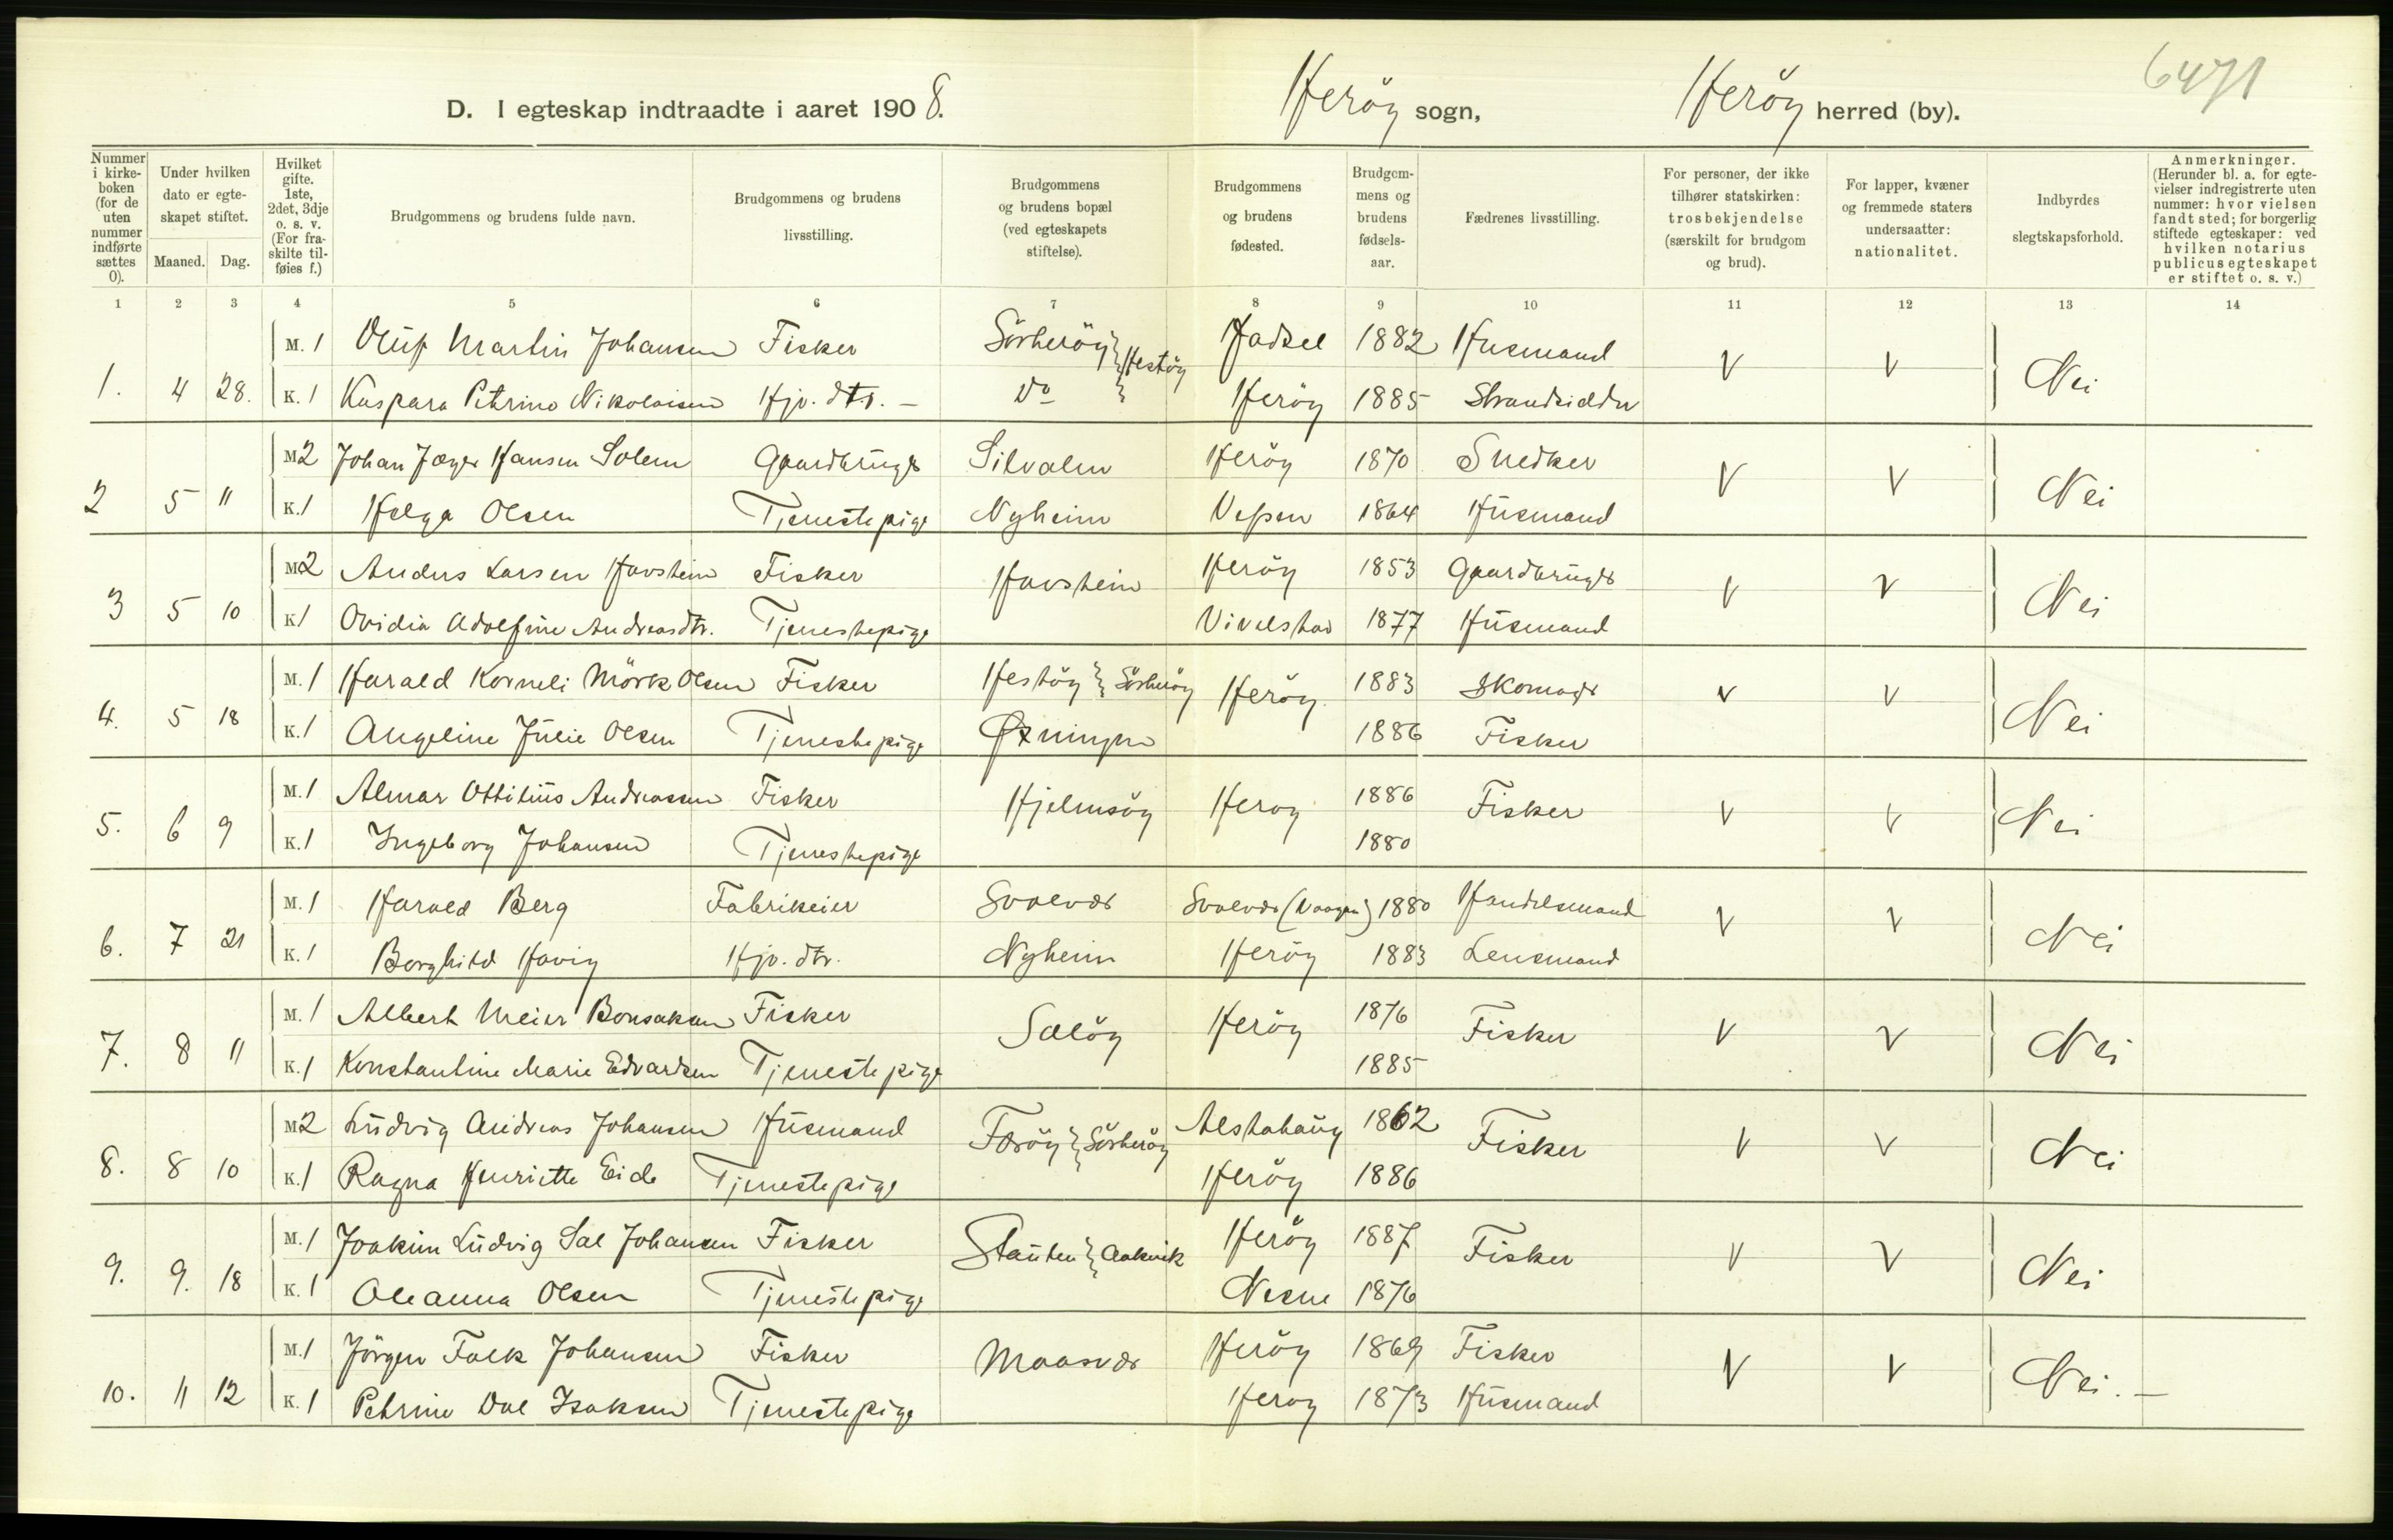 6471
D. I egteskap indtraadte i aaret 1908. Herøy sogn, Herøy herred (by).
Nummer i kirkeboken (for de uten nummer indførte sættes 0).
Under hvilken dato er egteskapet stiftet.
Maaned. Dag.
Hvilket gifte. 1ste, 2det, 3dje o. s. v. (For fraskilte tilføies f.)
Brudgommens og brudens fulde navn.
Brudgommens og brudens livsstilling.
Brudgommens og brudens bopæl (ved egteskapets stiftelse).
Brudgommens og brudens fødested.
Brudgommens og brudens fødselsaar.
Fædrenes livsstilling.
For personer, der ikke tilhører statskirken: trosbekjendelse (særskilt for brudgom og brud).
For lapper, kvæner og fremmede staters undersaatter: nationalitet.
Indbyrdes slegtskapsforhold.
Anmerkninger. (Herunder bl. a. for egtevielser indregistrerte uten nummer: hvor vielsen fandt sted; for borgerlig stiftede egteskaper: ved hvilken notarius publicus egteskapet er stiftet o. s. v.)
1 2 3 4 5 6 7 8 9 10 11 12 13 14
M. 1 Oluf Martin Johansen Fisker Sörheröy } Hestöy Hadsel 1882 Husmand V V
1. 4 28. K. 1 Kaspara Petrine Nikolaisen Hjv. dtr. – Do Heröy 1885 Strandsidder Nei
M 2 Johan Jæger Hansen Solem Gaardbruger Silvalen Heröy 1870 Snedker V V
2 5 11 K. 1 Helga Olsen Tjenestepige Nyheim Vefsen 1864 Husmand Nei
M 2 Anders Larsen Havstein Fisker Havstein Heröy 1853 Gaardbruger V V
3 5 10 K 1 Ovidia Adolfine Andreasdtr. Tjenestepige Vivelstad 1877 Husmand Nei
M. 1 Harald Korneli Mörk Olsen Fisker Hestöy } Sörheröy Heröy 1883 Skomager V V
4. 5 18 K. 1 Angeline Julie Olsen Tjenestepige Øxningen 1886 Fisker Nei
M. 1 Almar Ottilius Andreassen Fisker Hjelmsöy Heröy 1886 Fisker V V
5. 6 9 K. 1 Ingeborg Johansen Tjenestepige 1880 Nei
M. 1 Harald Berg Fabrikeier Svolvær Svolvær (Vaagan) 1880 Handelsmand V V
6. 7 21 K. 1 Borghild Havig Hjv. dtr. Nyheim Heröy 1883 Lensmand Nei
M. 1 Albert Meier Bonsaksen Fisker Salöy Heröy 1876 Fisker V V
7. 8 11 K. 1 Konstantine Marie Edvardsen Tjenestepige 1885 Nei
M 2 Ludvig Andreas Johansen Husmand Færöy } Sörheröy Alstahaug 1862 Fisker V V
8. 8 10 K. 1 Ragna Henriette Eide Tjenestepige Heröy 1886 Nei
M. 1 Joakim Ludvig Sal Johansen Fisker Stauten } Aakvik Heröy 1887 Fisker V V
9. 9. 18 K. 1 Oleanna Olsen Tjenestepige Nesne 1876 Nei
M. 1 Jörgen Falk Johansen Fisker Maasvær Heröy 1869 Fisker V V
10. 11 12 K. 1 Petrine Dal Isaksen Tjenestepige Heröy 1873 Husmand Nei. –